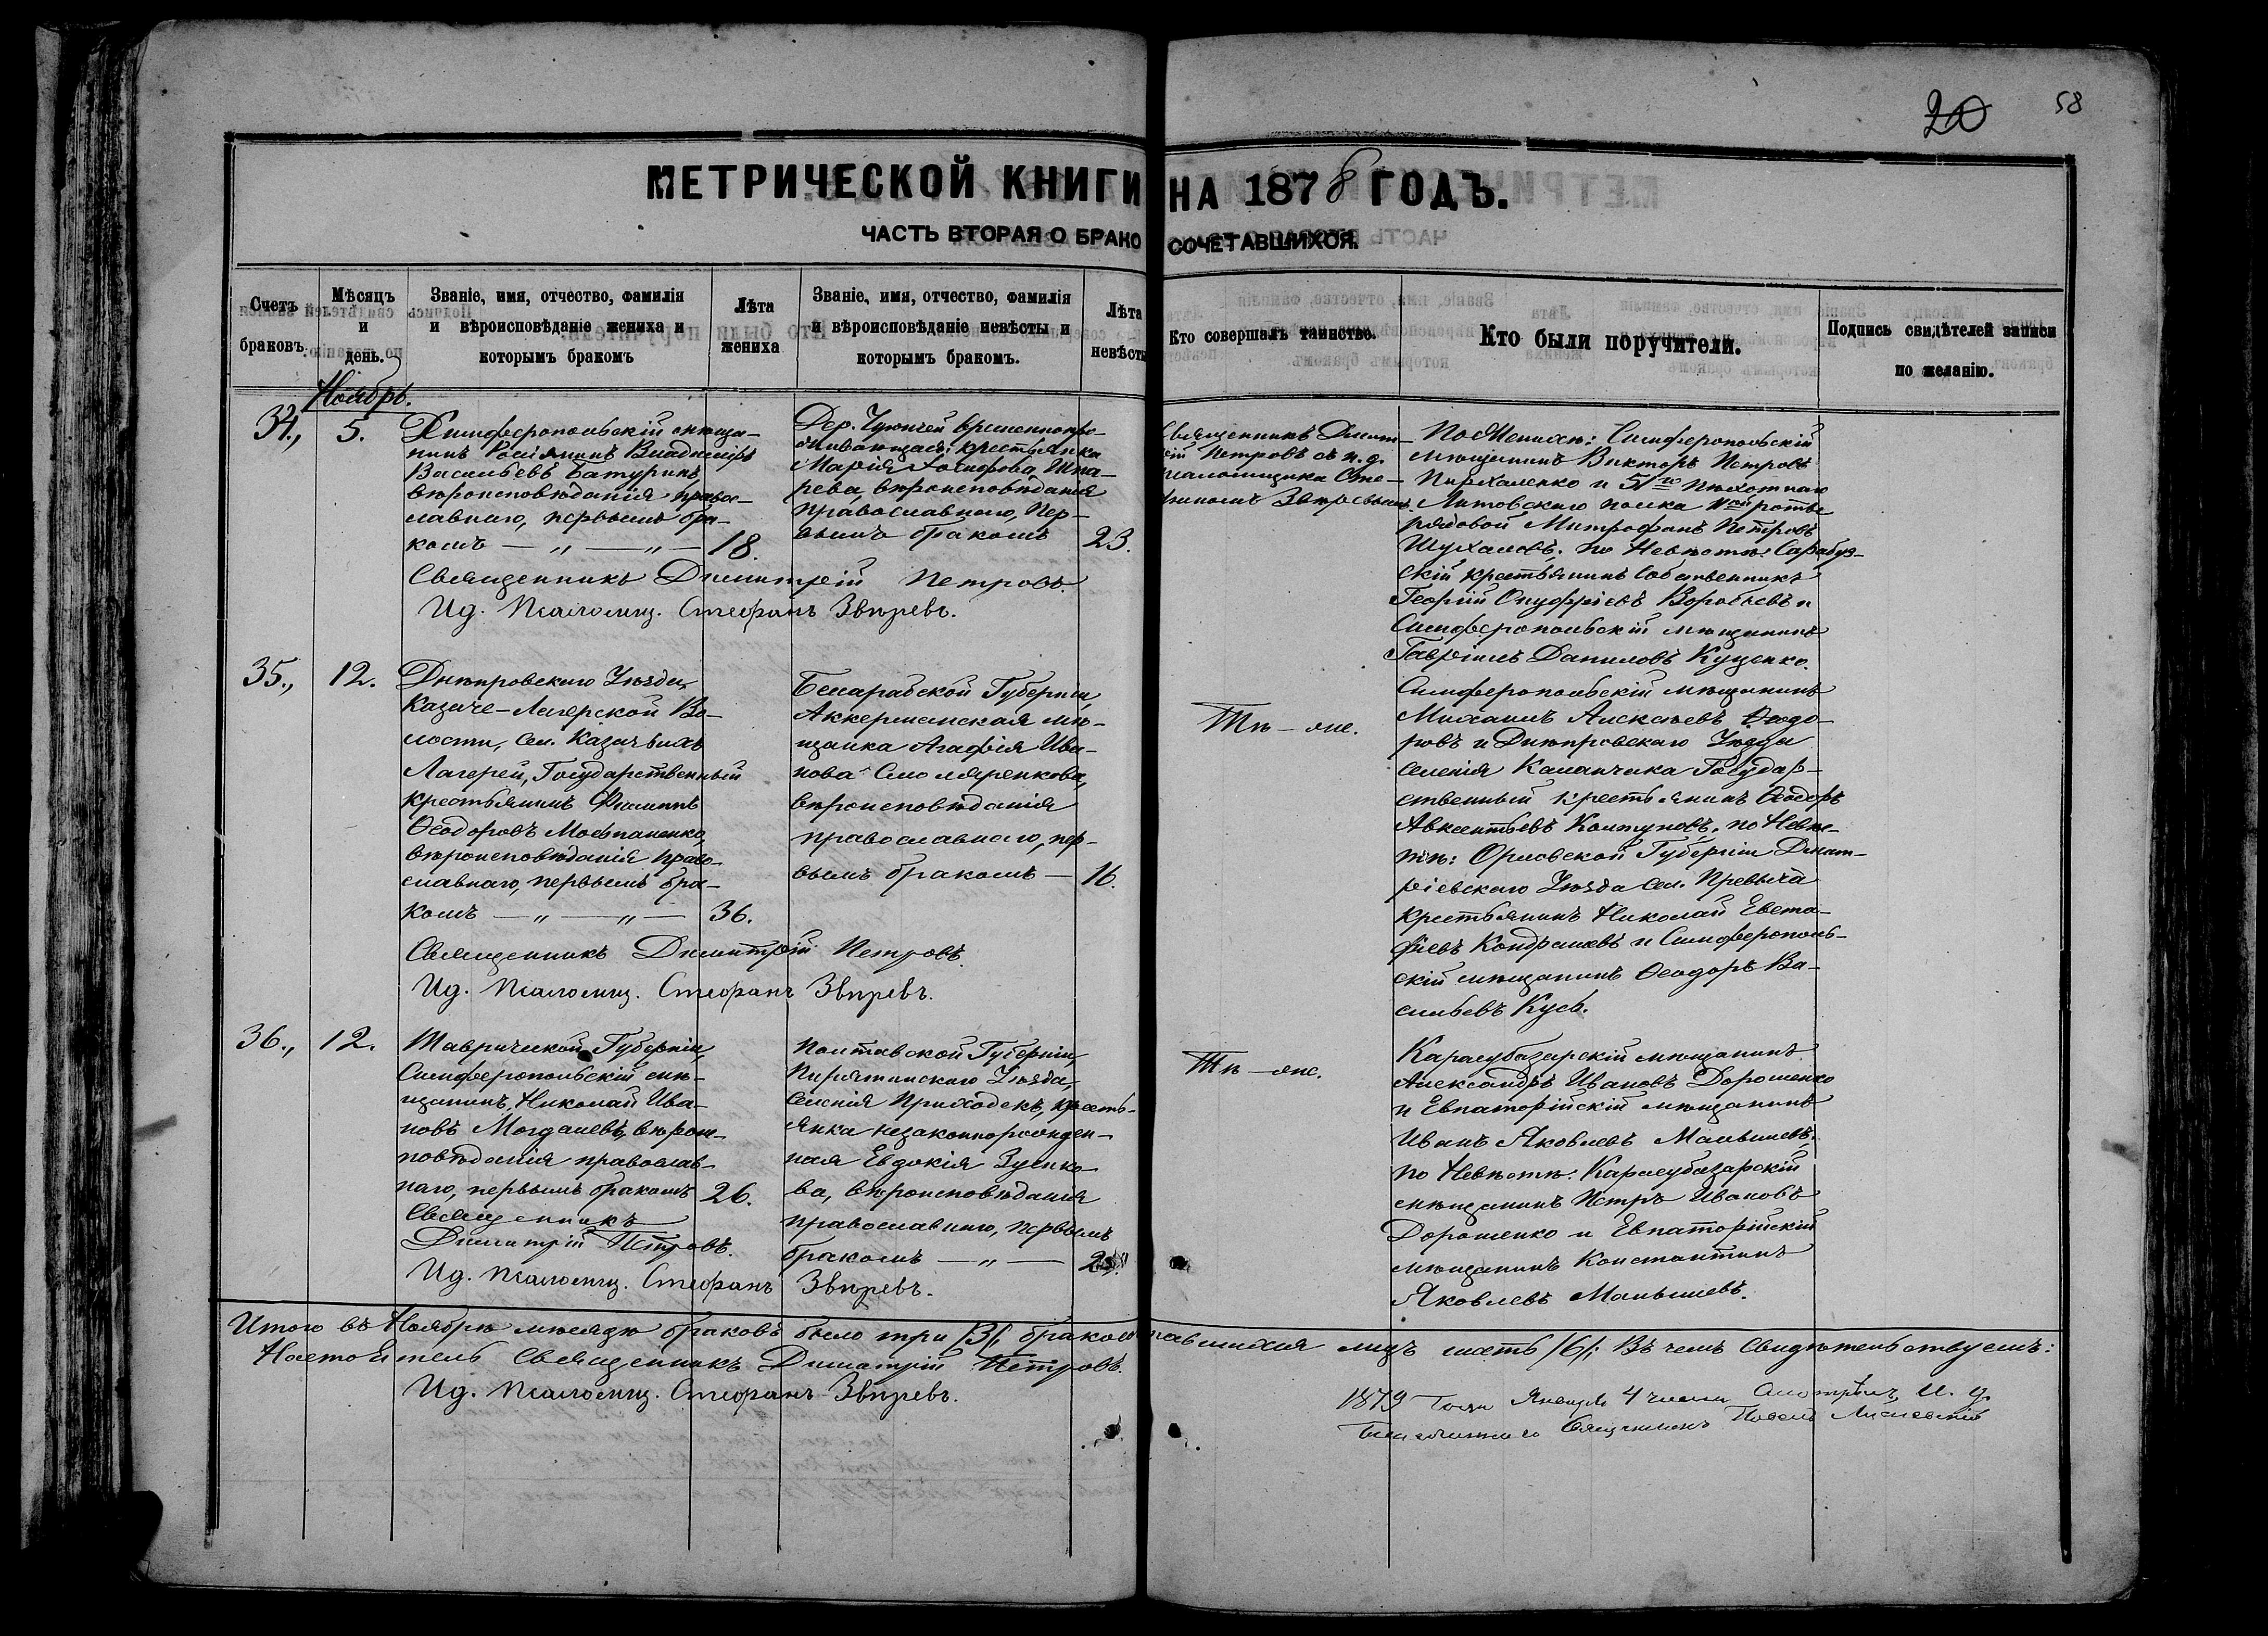 20
58
МЕТРИЧЕСКОЙ КНИГИ НА 1878 ГОДЪ.
ЧАСТЬ ВТОРАЯ О БРАКОСОЧЕТАВШИХСЯ.
Счетъ браковъ.
Мѣсяцъ и день.
Званіе, имя, отчество, фамилія и вѣроисповѣданіе жениха и которымъ бракомъ
Лѣта жениха
Званіе, имя, отчество, фамилія и вѣроисповѣданіе невѣсты и которымъ бракомъ.
Лѣта невѣсты
Кто совершалъ таинство.
Кто были поручители.
Подпись свидѣтелей записи по желанію.
Ноябрь.
34.,
5.
Симферопольскій мѣща-
нинъ Владиміръ
Васильевъ Батуринъ,
вѣроисповѣданія право-
славнаго, первымъ бра-
комъ — „ — „ — 18.
Дер. временнопро-
живающая крестьянка
Марія Іосифова
вѣроисповѣданія
православнаго, пер-
вымъ бракомъ 23.
Священникъ Димит-
рій Петровъ съ и. д.
псаломщика Сте-
фаномъ Звѣревымъ.
По Женихѣ: Симферопольскій
мѣщанинъ Викторъ Петровъ
Пархаленко и 51го пѣхотнаго
Литовскаго полка роты
рядовой Митрофанъ Петровъ
Шухаловъ. по Невѣстѣ: Сарабуз-
скій крестьянинъ собственникъ
Георгій Онуфріевъ Воробьевъ и
Симферопольскій мѣщанинъ
Гавріилъ Даниловъ Куценко.
Священникъ Димитрій Петровъ.
Ид. Псаломщ. Стефанъ Звѣревъ.
35.,
12.
Днѣпровскаго Уѣзда,
Казаче-Лагерской Во-
лости, Сел. Казачьихъ
Лагерей, Государственный
крестьянинъ Филиппъ
Ѳеодоровъ Мосьпаненко,
вѣроисповѣданія право-
славнаго, первымъ бра-
комъ — „ — „ — 36.
Бесарабской Губерніи,
Аккерманская мѣ-
щанка Агафія Ива-
нова Смоляренкова,
вѣроисповѣданія
православнаго, пер-
вымъ бракомъ — 16.
Тѣ-же.
Симферопольскій мѣщанинъ
Михаилъ Алексѣевъ Ѳеодо-
ровъ и Днѣпровскаго Уѣзда
селенія Каланчака Государ-
ственный крестьянинъ Ѳеодоръ
Авксентьевъ Колтуновъ. по Невѣс-
тѣ: Орловской Губерніи Дмит-
ріевскаго Уѣзда сел.
крестьянинъ Николай Евста-
фіевъ Кондрашевъ и Симферополь-
скій мѣщанинъ Ѳеодоръ Ва-
сильевъ Кусь.
Священникъ Димитрій Петровъ.
Ид. Псаломщ. Стефанъ Звѣревъ.
36.,
12.
Таврической Губерніи,
Симферопольскій мѣ-
щанинъ, Николай Ива-
новъ Могдалевъ, вѣроис-
повѣданія православ-
наго, первымъ бракомъ 26.
Полтавской Губерніи,
Пирятинскаго Уѣзда,
Селенія Приходекъ, кресть-
янка незаконнорожден-
ная Евдокія Зуенко-
ва, вѣроисповѣданія
православнаго, первымъ
бракомъ — „ —
Тѣ-же.
Карасубазарскій мѣщанинъ
Александръ Ивановъ Дорошенко
и Евпаторійскій мѣщанинъ
Иванъ Яковлевъ Малышевъ.
по Невѣстѣ: Карасубазарскій
мѣщанинъ Петръ Ивановъ
Дорошенко и Евпаторійскій
мѣщанинъ Константинъ
Яковлевъ Малышевъ.
Священникъ
Димитрій Петровъ.
Ид. Псаломщ. Стефанъ Звѣревъ.
Итого въ Ноябрѣ мѣсяцѣ браковъ было три /3/, бракосочетавшихся лицъ шесть /6/; Въ чемъ Свидѣтельствуемъ:
Настоятель Священникъ Димитрій Петровъ.
Ид. Псаломщ. Стефанъ Звѣревъ.
1879 Года Января 4 числа смотрѣлъ и. д.
Благочиннаго Священникъ